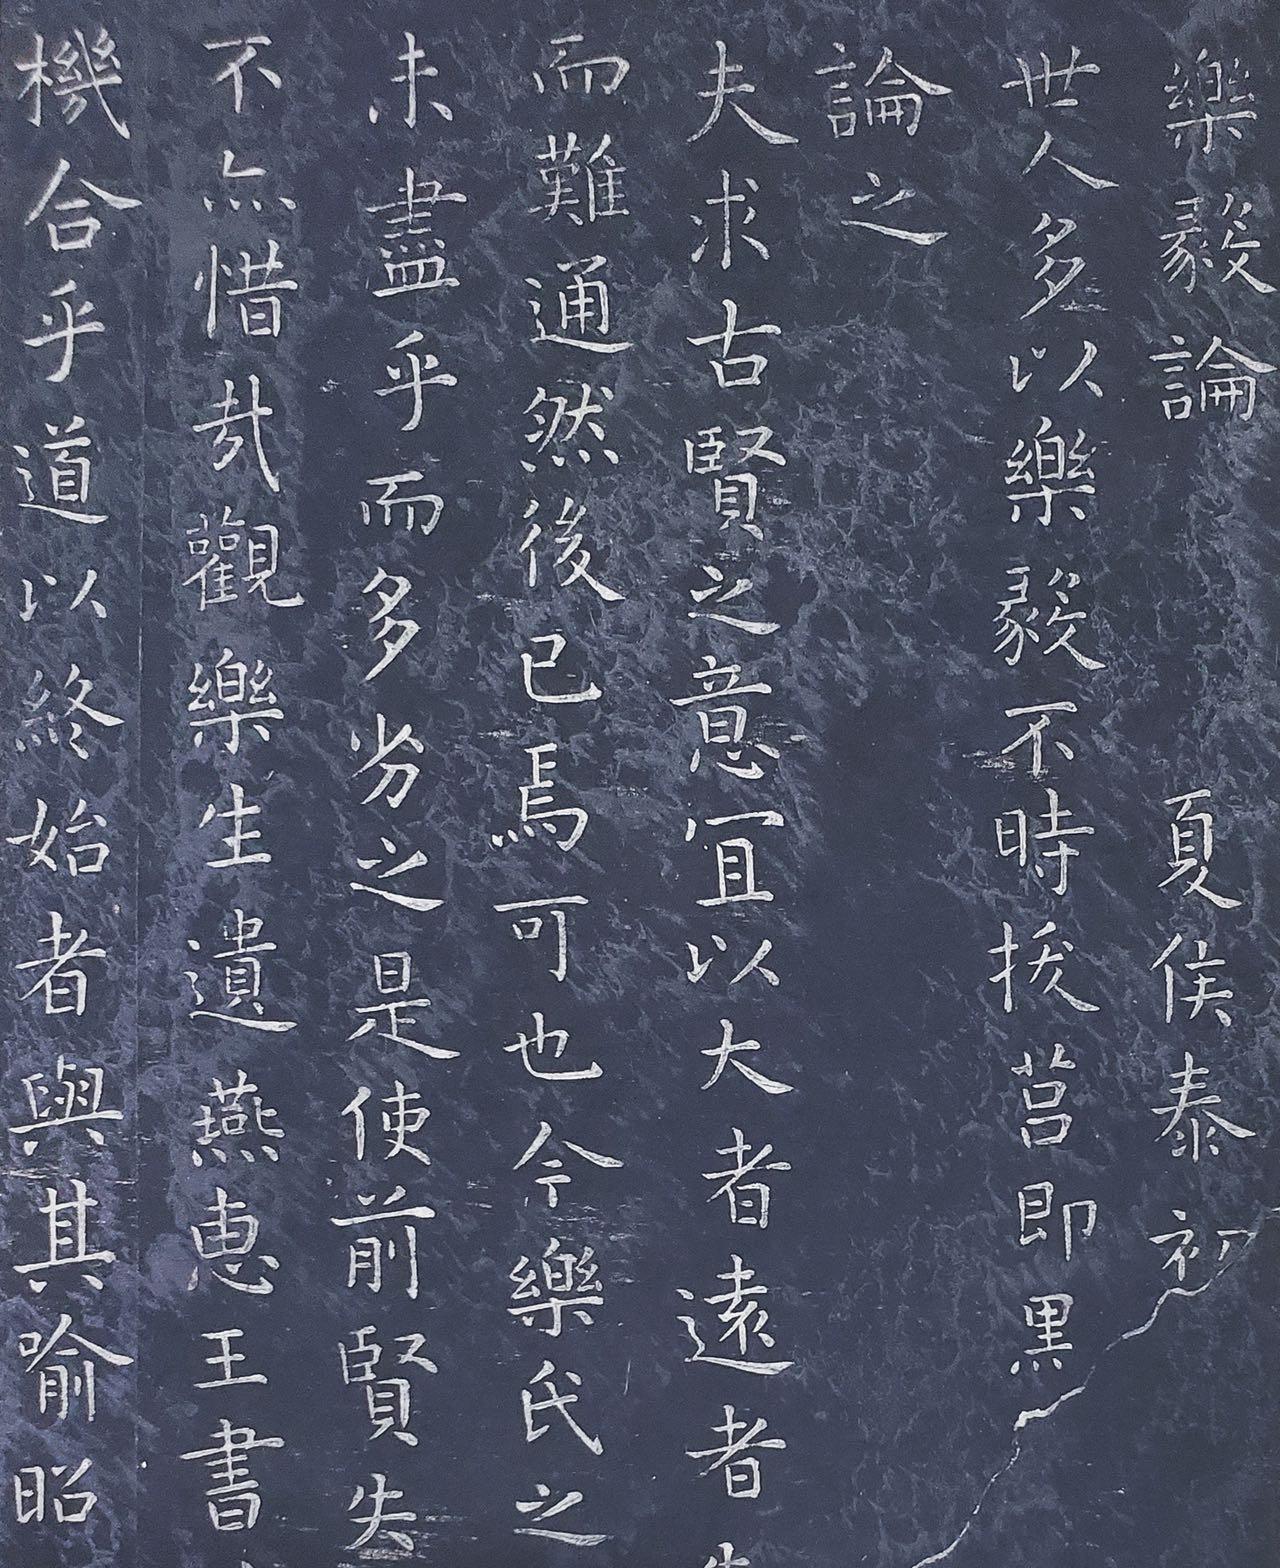 樂毅論 夏侯泰初
世人多以樂毅不時拔莒即墨
論之
夫求古賢之意宜以大者遠者先
而難通然後已焉可也今樂氏之
未盡乎而多劣之是使前賢失
不亦惜哉觀樂生遺燕惠王書
機合乎道以終始者與其喻昭